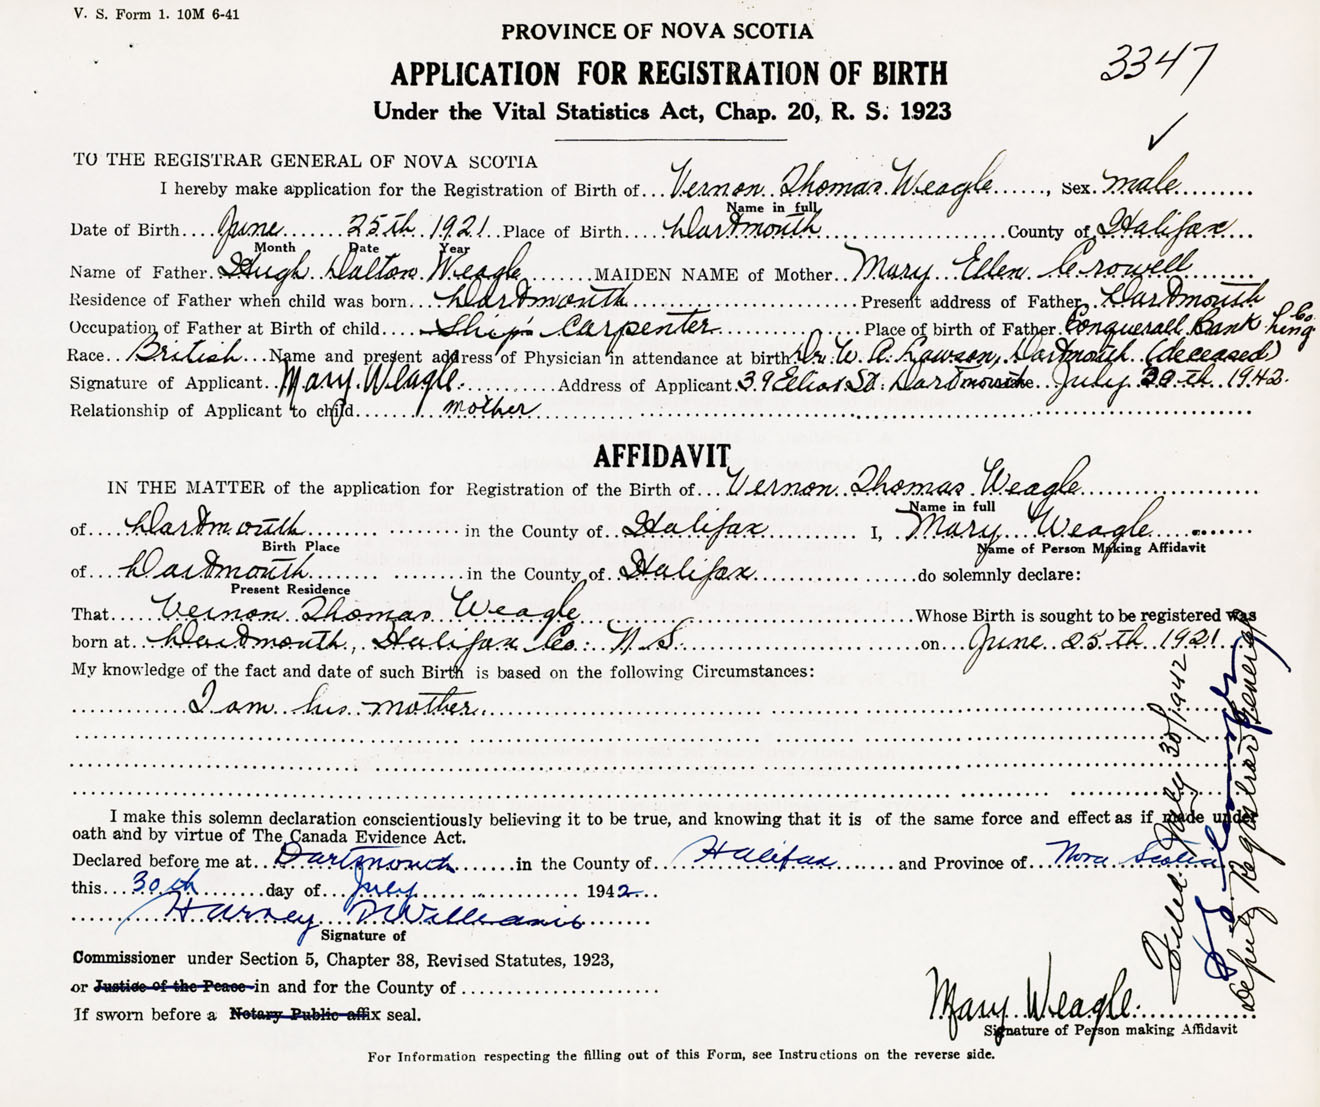 V. S. Form 1. 10M 6-41
PROVINCE OF NOVA SCOTIA
3347
APPLICATION FOR REGISTRATION OF BIRTH
Under the Vital Statistics Act, Chap. 20, R. S. 1923
TO THE REGISTRAR GENERAL OF NOVA SCOTIA
I hereby make application for the Registration of Birth of... Vernon Thomas Weagle ......, Sex. male
Name in full
Date of Birth.... June 25th 1921 Place of Birth.... Dartmouth County of Halifax
Month Date Year
Name of Father. Hugh Dalton Weagle MAIDEN NAME of Mother.. Mary Ellen Crowell
Residence of Father when child was born... Dartmouth Present address of Father. Dartmouth
Occupation of Father at Birth of child.... Ship's Carpenter Place of birth of Father. Conquerall Bank Lunq Co.
Race.. British Name and present address of Physician in attendance at birth Dr. W. A. Lawson, Dartmouth (deceased)
Signature of Applicant.. Mary Weagle. Address of Applicant. 39 Elliot St. Dartmouth July 30th 1942.
Relationship of Applicant to child mother
AFFIDAVIT
IN THE MATTER of the application for Registration of the Birth of... Vernon Thomas Weagle
Name in full
of... Dartmouth in the County of.. Halifax I, Mary Weagle
Birth Place Name of Person Making Affidavit
of... Dartmouth in the County of. Halifax do solemnly declare:
Present Residence
That.... Vernon Thomas Weagle Whose Birth is sought to be registered was
born at.. Dartmouth, Halifax Co. N.S. on June 25th 1921
My knowledge of the fact and date of such Birth is based on the following Circumstances:
I am his mother.
I make this solemn declaration conscientiously believing it to be true, and knowing that it is of the same force and effect as if made under
oath and by virtue of The Canada Evidence Act.
Declared before me at.. Dartmouth in the County of Halifax and Province of Nova Scotia
this... 30th day of July 1942
Harvey Williams
Signature of
Commissioner under Section 5, Chapter 38, Revised Statutes, 1923,
or Justice of the Peace in and for the County of
If sworn before a Notary Public affix seal.
Mary Weagle.
Signature of Person making Affidavit
Filed July 30/1942
Deputy Registrar General
For Information respecting the filling out of this Form, see Instructions on the reverse side.